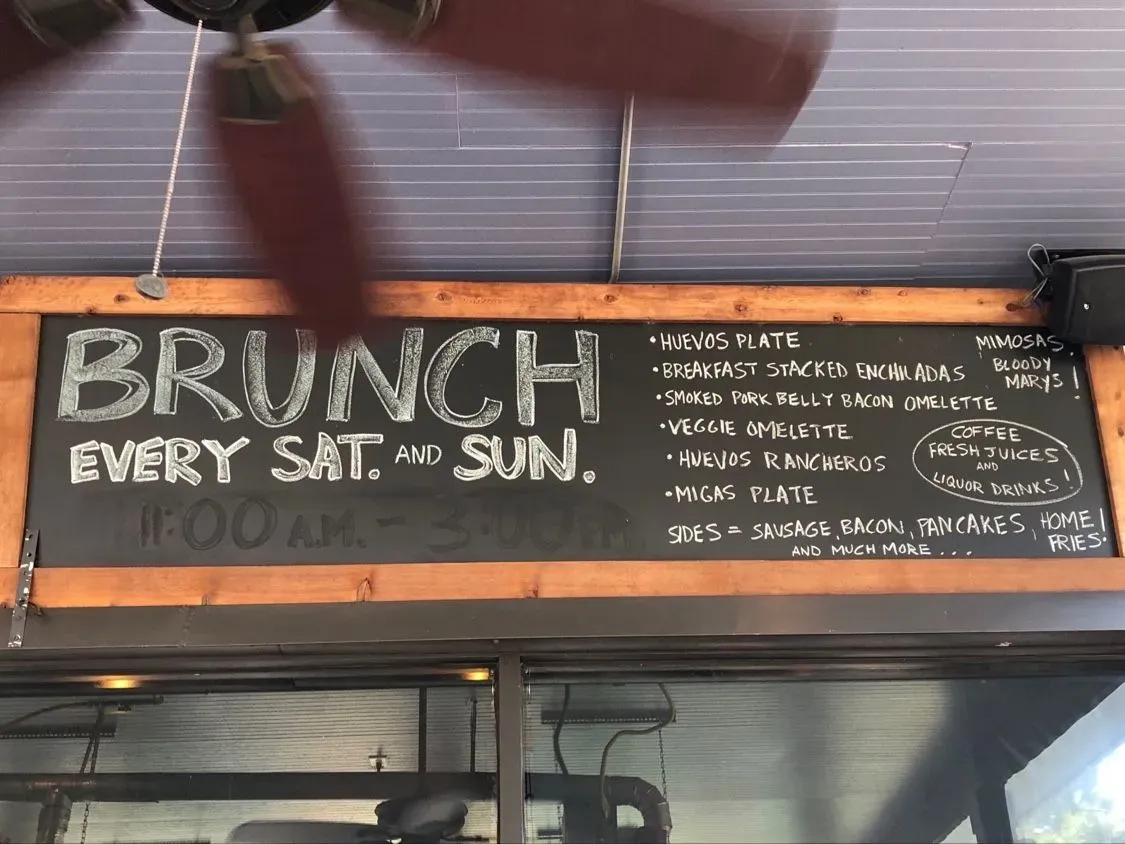 BRUNCH
EVERY SAT. AND SUN.
11:00 A.M. - 3:00 PM
• HUEVOS PLATE
• BREAKFAST STACKED ENCHILADAS
• SMOKED PORK BELLY BACON OMELETTE
• VEGGIE OMELETTE
• HUEVOS RANCHEROS
• MIGAS PLATE
SIDES = SAUSAGE, BACON, PANCAKES, HOME FRIES!
AND MUCH MORE ...
MIMOSAS,
BLOODY
MARYS!
COFFEE
FRESH JUICES
AND
LIQUOR DRINKS!